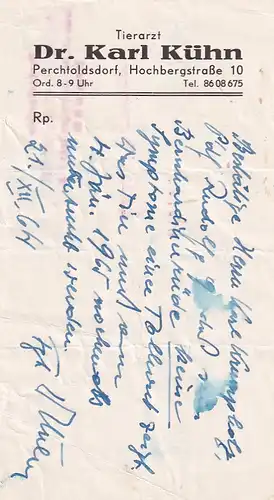 Tierarzt
Dr. Karl Kühn
Perchtoldsdorf, Hochbergstraße 10
Ord. 8-9 Uhr Tel. 86 08 675
Rp.
Bestätige Herrn
Rudolf
Bernhardinerrüde keine
Symptome einer Tollwut zeigt.
Das Tier muß am
4. Jän. 1965 nochmals
untersucht werden.
21./XII. 64